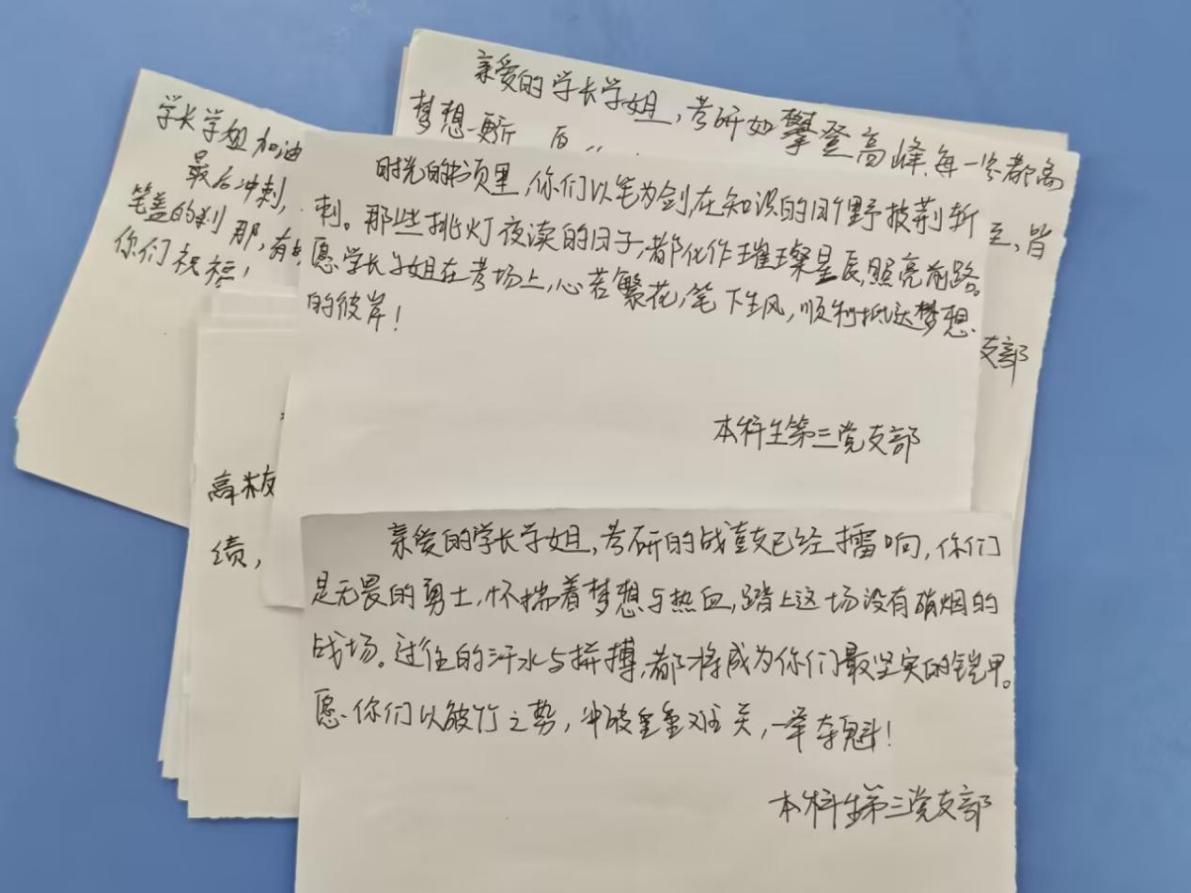 学长学姐加油
最后冲刺，
笔盖的刹那，有
你们祝福！
亲爱的学长学姐，考研如攀登高峰，每一步都离
梦想更近
至，皆
支部
时光的书页里，你们以笔为剑，在知识的旷野披荆斩
刺。那些挑灯夜读的日子，都化作璀璨星辰，照亮前路。
愿学长学姐在考场上，心若繁花，笔下生风，顺利抵达梦想
的彼岸！
本科生第三党支部
高
绩，
亲爱的学长学姐，考研的战鼓已经擂响，你们
是无畏的勇士，怀揣着梦想与热血，踏上这场没有硝烟的
战场。过往的汗水与拼搏，都将成为你们最坚实的铠甲。
愿你们以破竹之势，冲破重重难关，一举夺魁！
本科生第三党支部